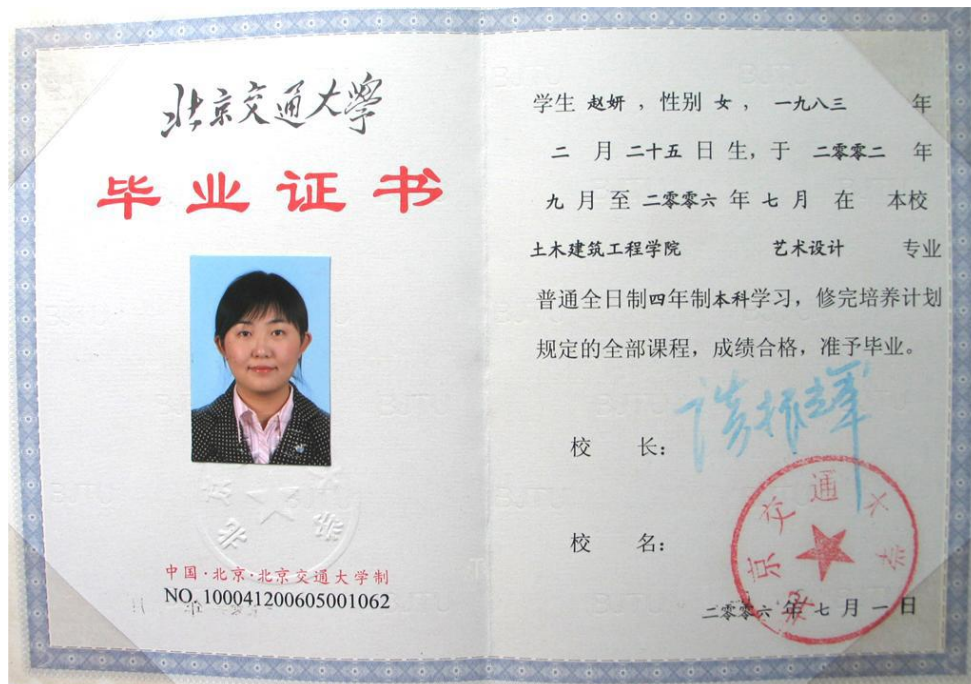 北京交通大學
毕业证书
中国·北京·北京交通大学制
NO. 100041200605001062
学生 赵妍 ，性别 女 ， 一九八三 年
二 月 二十五 日 生，于 二零零二 年
九 月 至 二零零六 年 七 月 在 本校
土木建筑工程学院 艺术设计 专业
普通全日制四年制本科学习，修完培养计划
规定的全部课程，成绩合格，准予毕业。
校 长：
校 名：
北京交通大学
二零零六 年 七 月 一 日